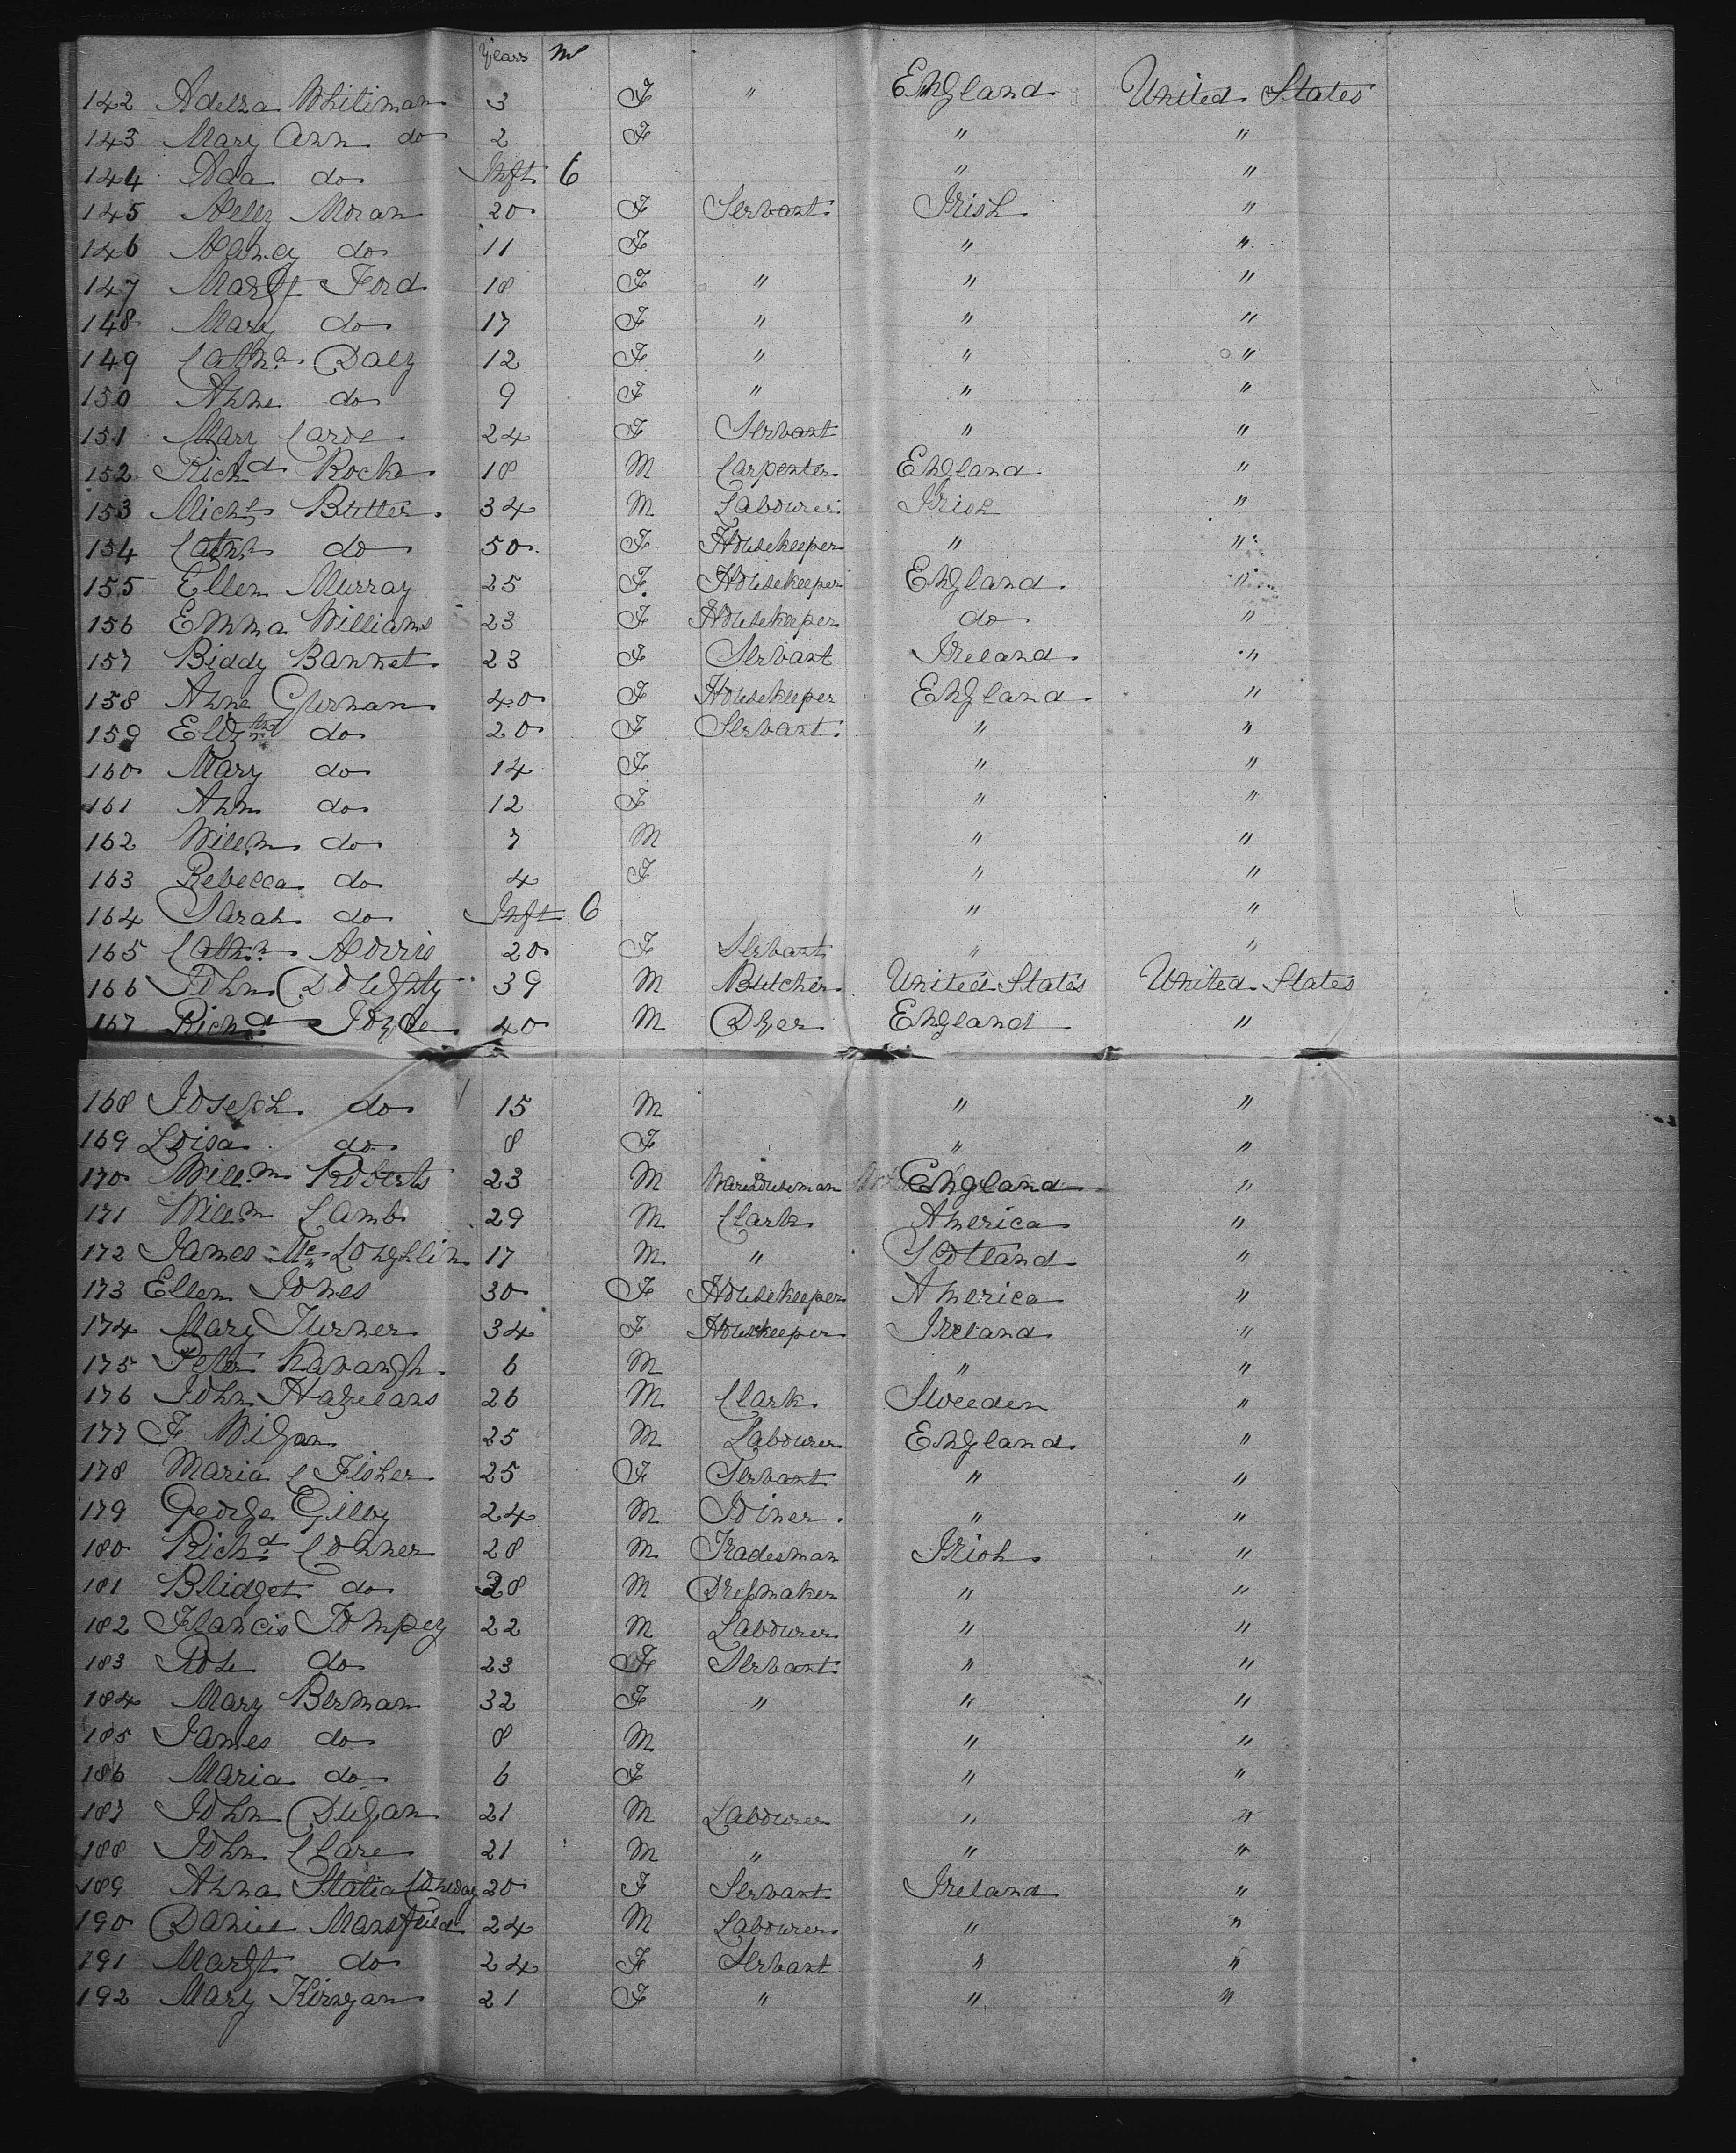 Years M
142 Adelza Whitiman 3 F " England United States
143 Mary Ann do 2 F " "
144 Ada do Inft 6 " "
145 Nelly Moran 20 F Servant Irish "
146 Nancy do 11 F " "
147 Margt Ford 18 F " " "
148 Mary do 17 F " " "
149 Cathn Daly 12 F " " "
150 Anne do 9 F " " "
151 Mary Carde 24 F Servant " "
152 Richd Roche 18 M Carpenter England "
153 Michl Butter 34 M Labourer Irish "
154 Cathn do 50 F Housekeeper " "
155 Ellen Murray 25 F Housekeeper England "
156 Emma Williams 23 F Housekeeper do "
157 Biddy Bannet 23 F Servant Ireland "
158 Anne Gurnan 40 F Housekeeper England "
159 Elizth do 20 F Servant " "
160 Mary do 14 F " "
161 Ann do 12 F " "
162 Willm do 7 M " "
163 Rebecca do 4 F " "
164 Sarah do Inft 6 " "
165 Cathn Norris 20 F Servant " "
166 John Doughty 39 M Butcher United States United States
167 Richd Joyce 40 M Dyer England "
168 Joseph do 15 M " "
169 Loisa do 8 F " "
170 Willm Roberts 23 M Warehouseman England "
171 Willm Lamb 29 M Clark America "
172 James Mc Loughlin 17 M " Scotland "
173 Ellen Jones 30 F Housekeeper America "
174 Mary Turner 34 F Housekeeper Ireland "
175 Peter Kavangh 6 M " "
176 John Hazelans 26 M Clark Sweeden "
177 F Wilson 25 M Labourer England "
178 Maria C Fisher 25 F Servant " "
179 George Gilby 24 M Joiner " "
180 Richd Conner 28 M Tradesman Irish "
181 Bridget do 28 M Dressmaker " "
182 Francis Tompey 22 M Labourer " "
183 Rose do 23 F Servant " "
184 Mary Bernan 32 F " " "
185 James do 8 M " "
186 Maria do 6 F " "
187 John Dugan 21 M Labourer " "
188 John Clare 21 M " " "
189 Anna Statia 20 F Servant Ireland "
190 Daniel Mansfield 24 M Labourer " "
191 Margt do 24 F Servant " "
192 Mary Kirwan 21 F " " "